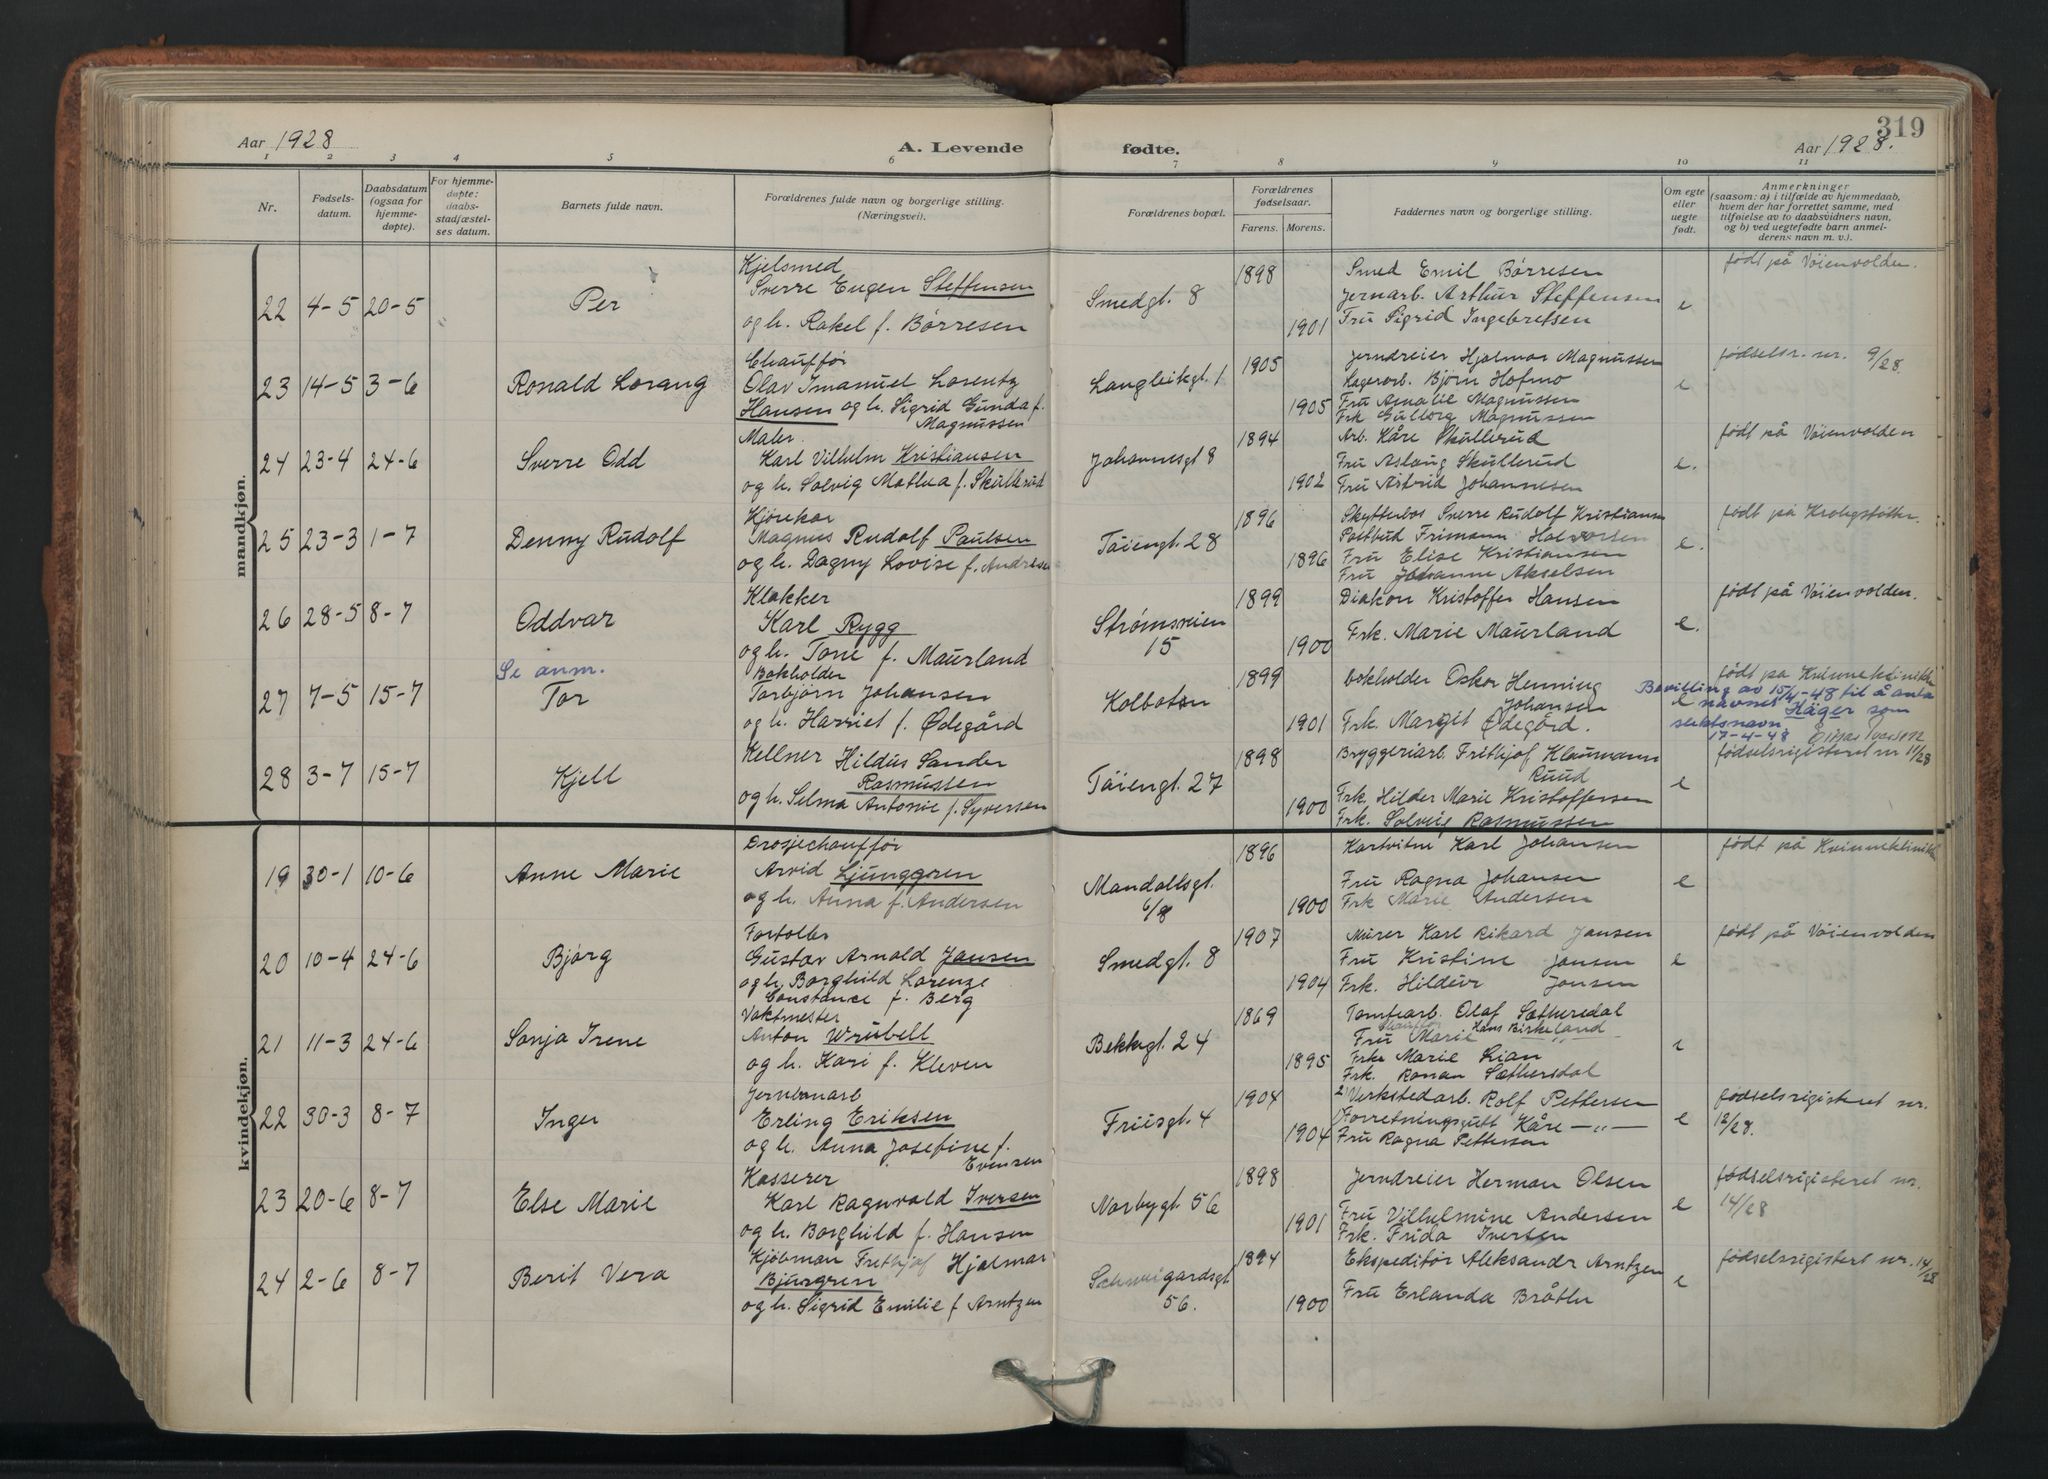 319
Aar 1928
A. Levende
fødte.
Aar 1928.
1 2 3 4 5 6 7 8 9 10 11
Nr.
Fødsels-
datum.
Daabsdatum
(ogsaa for
hjemme-
døpte).
For hjemme-
døpte:
daabs-
stadfæstel-
ses datum.
Barnets fulde navn.
Forældrenes fulde navn og borgerlige stilling.
(Næringsvei).
Forældrenes bopæl.
Forældrenes
fødselsaar.
Farens. Morens.
Faddernes navn og borgerlige stilling.
Om egte
eller
uegte
født.
Anmerkninger
(saasom: a) i tilfælde av hjemmedaab,
hvem der har forrettet samme, med
tilføielse av to daabsvidners navn,
og b) ved uegtefødte barn anmel-
derens navn m. v.).
mandkjøn.
22 4-5 20-5 Per
Kjelsmed
Sverre Eugen Steffensen
og h. Rakel f. Børresen
Smedgt. 8
1898
1901
Smed Emil Børresen
Jernarb. Arthur Steffensen
Fru Sigrid Ingebretsen
e
født på Vøienvolden.
23 14-5 3-6 Ronald Lorang
Chauffør
Olav Imanuel Lorentz
Hansen og h. Sigrid Gunda f.
Magnussen
Langleiksgt. 1
1905
1905
Jerndreier Hjalmar Magnussen
Lagerarb. Bjørn Hofmo
Fru Amalie Magnussen
Frk Gulborg Magnussen
e
fødselsr. nr. 9/28.
24 23-4 24-6 Sverre Odd
Maler
Karl Vilhelm Kristiansen
og h. Solvig Mathea f. Skullerud
Johannesgt 8
1894
1902
Arb. Kåre Skullerud
Fru Aslaug Skullerud
Fru Astrid Johannesen
e.
født på Vøienvolden
25 23-3 1-7 Denny Rudolf
Kjørekar
Magnus Rudolf Paulsen
og h. Dagny Lovise f. Andresen
Tøiengt. 28
1896
1896
Sverre Rudolf Kristiansen
Postbud Frimann Halvorsen
Fru Elise Kristiansen
Fru Johanne Akselsen
e.
født på
26 28-5 8-7 Oddvar
Klokker
Karl Rygg
og h. Tone f. Maurland
Strømsveien
15
1899
1900
Diakon Kristoffer Hansen
Frk. Marie Maurland
e.
født på Vøienvolden.
Se anm.
27 7-5 15-7 Tor
Bokholder
Torbjørn Johansen
og h. Harriet f. Ødegård
Kolbotn
1899
1901
bokholder Oskar Henning
Johansen
Frk. Margit Ødegård.
e
født på Kvinneklinikken
Bevilling av 15/4-48 til å anta
navnet Häger som
slektsnavn
17-4-48
28 3-7 15-7 Kjell
Kellner Hildus Sander
Rasmussen
og h. Selma Antonie f. Syversen
Tøiengt. 27
1898
1900
Bryggeriarb. Frithjof Klaumann
Ruud
Frk. Hilder Marie Kristoffersen
Frk. Solveig Rasmussen
e
fødselsregisteret nr 11/28
kvindekjøn.
19 30-1 10-6 Anne Marie
Drosjechauffør
Arvid Ljunggren
og h. Anna f. Andersen
Mandallsgt.
6/8
1896
1900
Karl Johansen
Fru Ragna Johansen
Frk Marie Andersen
e
født på Kvinneklinikken
20 10-4 24-6 Bjørg
Fortolber
Gustav Arnold Jansen
og h. Borghild Lorenze
Constance f. Berg
Smedgt. 8
1907
1904
Murer Karl Rikard Jansen
Fru Kristine Jansen
Frk. Hildur Jansen
e
født på Vøienvolden
21 11-3 24-6 Sonja Irene
Vaktmester
Anton Wrubell
og h. Kari f. Kleven
Bekkegt. 24
1869
1895
Tomtearb. Olaf Sæthersdal
Chauffør Hans Birkeland
Fru Marie — " —
Frk. Marie Lian
Frk. Ronan Sæthersdal
e
22 30-3 8-7 Inger
Jernbanarb
Erling Eriksen
og h. Anna Josefine f.
Evensen
Friisgt. 4
1904
1904
2) Verkstedarb. Rolf Pettersen
1) Forretningsgutt Kåre — " —
Fru Ragna Pettersen
e
fødselsregisteret nr.
12/28.
23 20-6 8-7 Else Marie
Kasserer
Karl Ragnvald Iversen
og h. Borghild f. Hansen
Norbygt. 56
1898
1901
Jerndreier Herman Olsen
Fru Vilhelmine Andersen
Frk. Frida Iversen
e
fødselsregisteret nr.
14/28
24 2-6 8-7 Berit Vera
Kjøbman Frethjof Hjalmar
Bjurgren
og h. Sigrid Emilie f Arntzen
Schweigaardsgt
56.
1894
1900
Ekspeditør Aleksandr Arntzen
Fru Erlanda Bråthe
e
fødselsregistert nr. 14/28